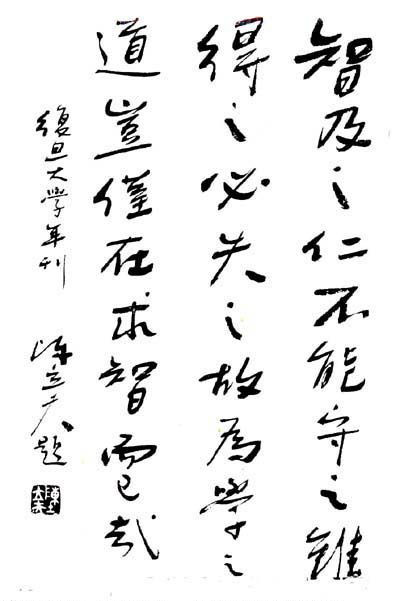 智及之仁不能守之雖
得之必失之故為學之
道豈僅在求智而已哉
復旦大學年刊
陳立夫題